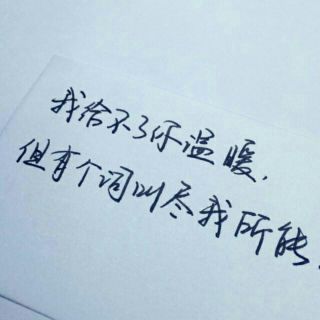 我给不了你温暖,
但有个词叫尽我所能.